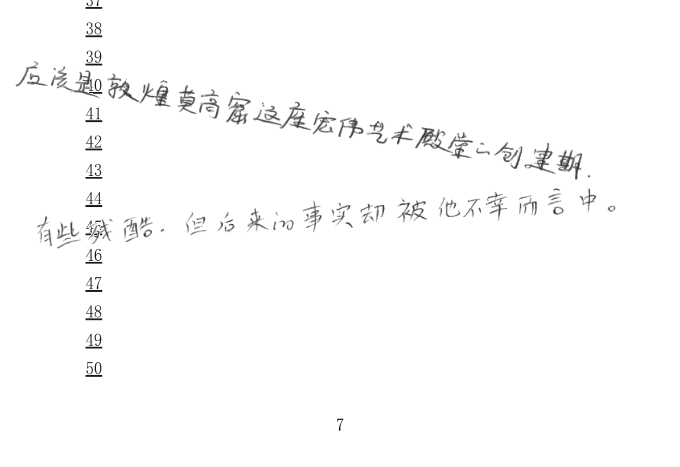 37
38
39
40
应该是敦煌莫高窟这座宏伟艺术殿堂的创建期.
41
42
43
44
45
有些残酷.但后来的事实却被他不幸而言中。
46
47
48
49
50
7